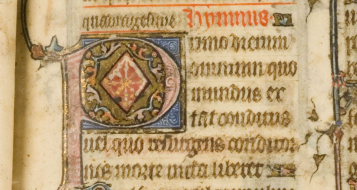 quadragesime Hymnus
Primo dierum
omnium quo
mundus ex
tat conditus
uel quo resurgens conditor
nos morte uicta liberet